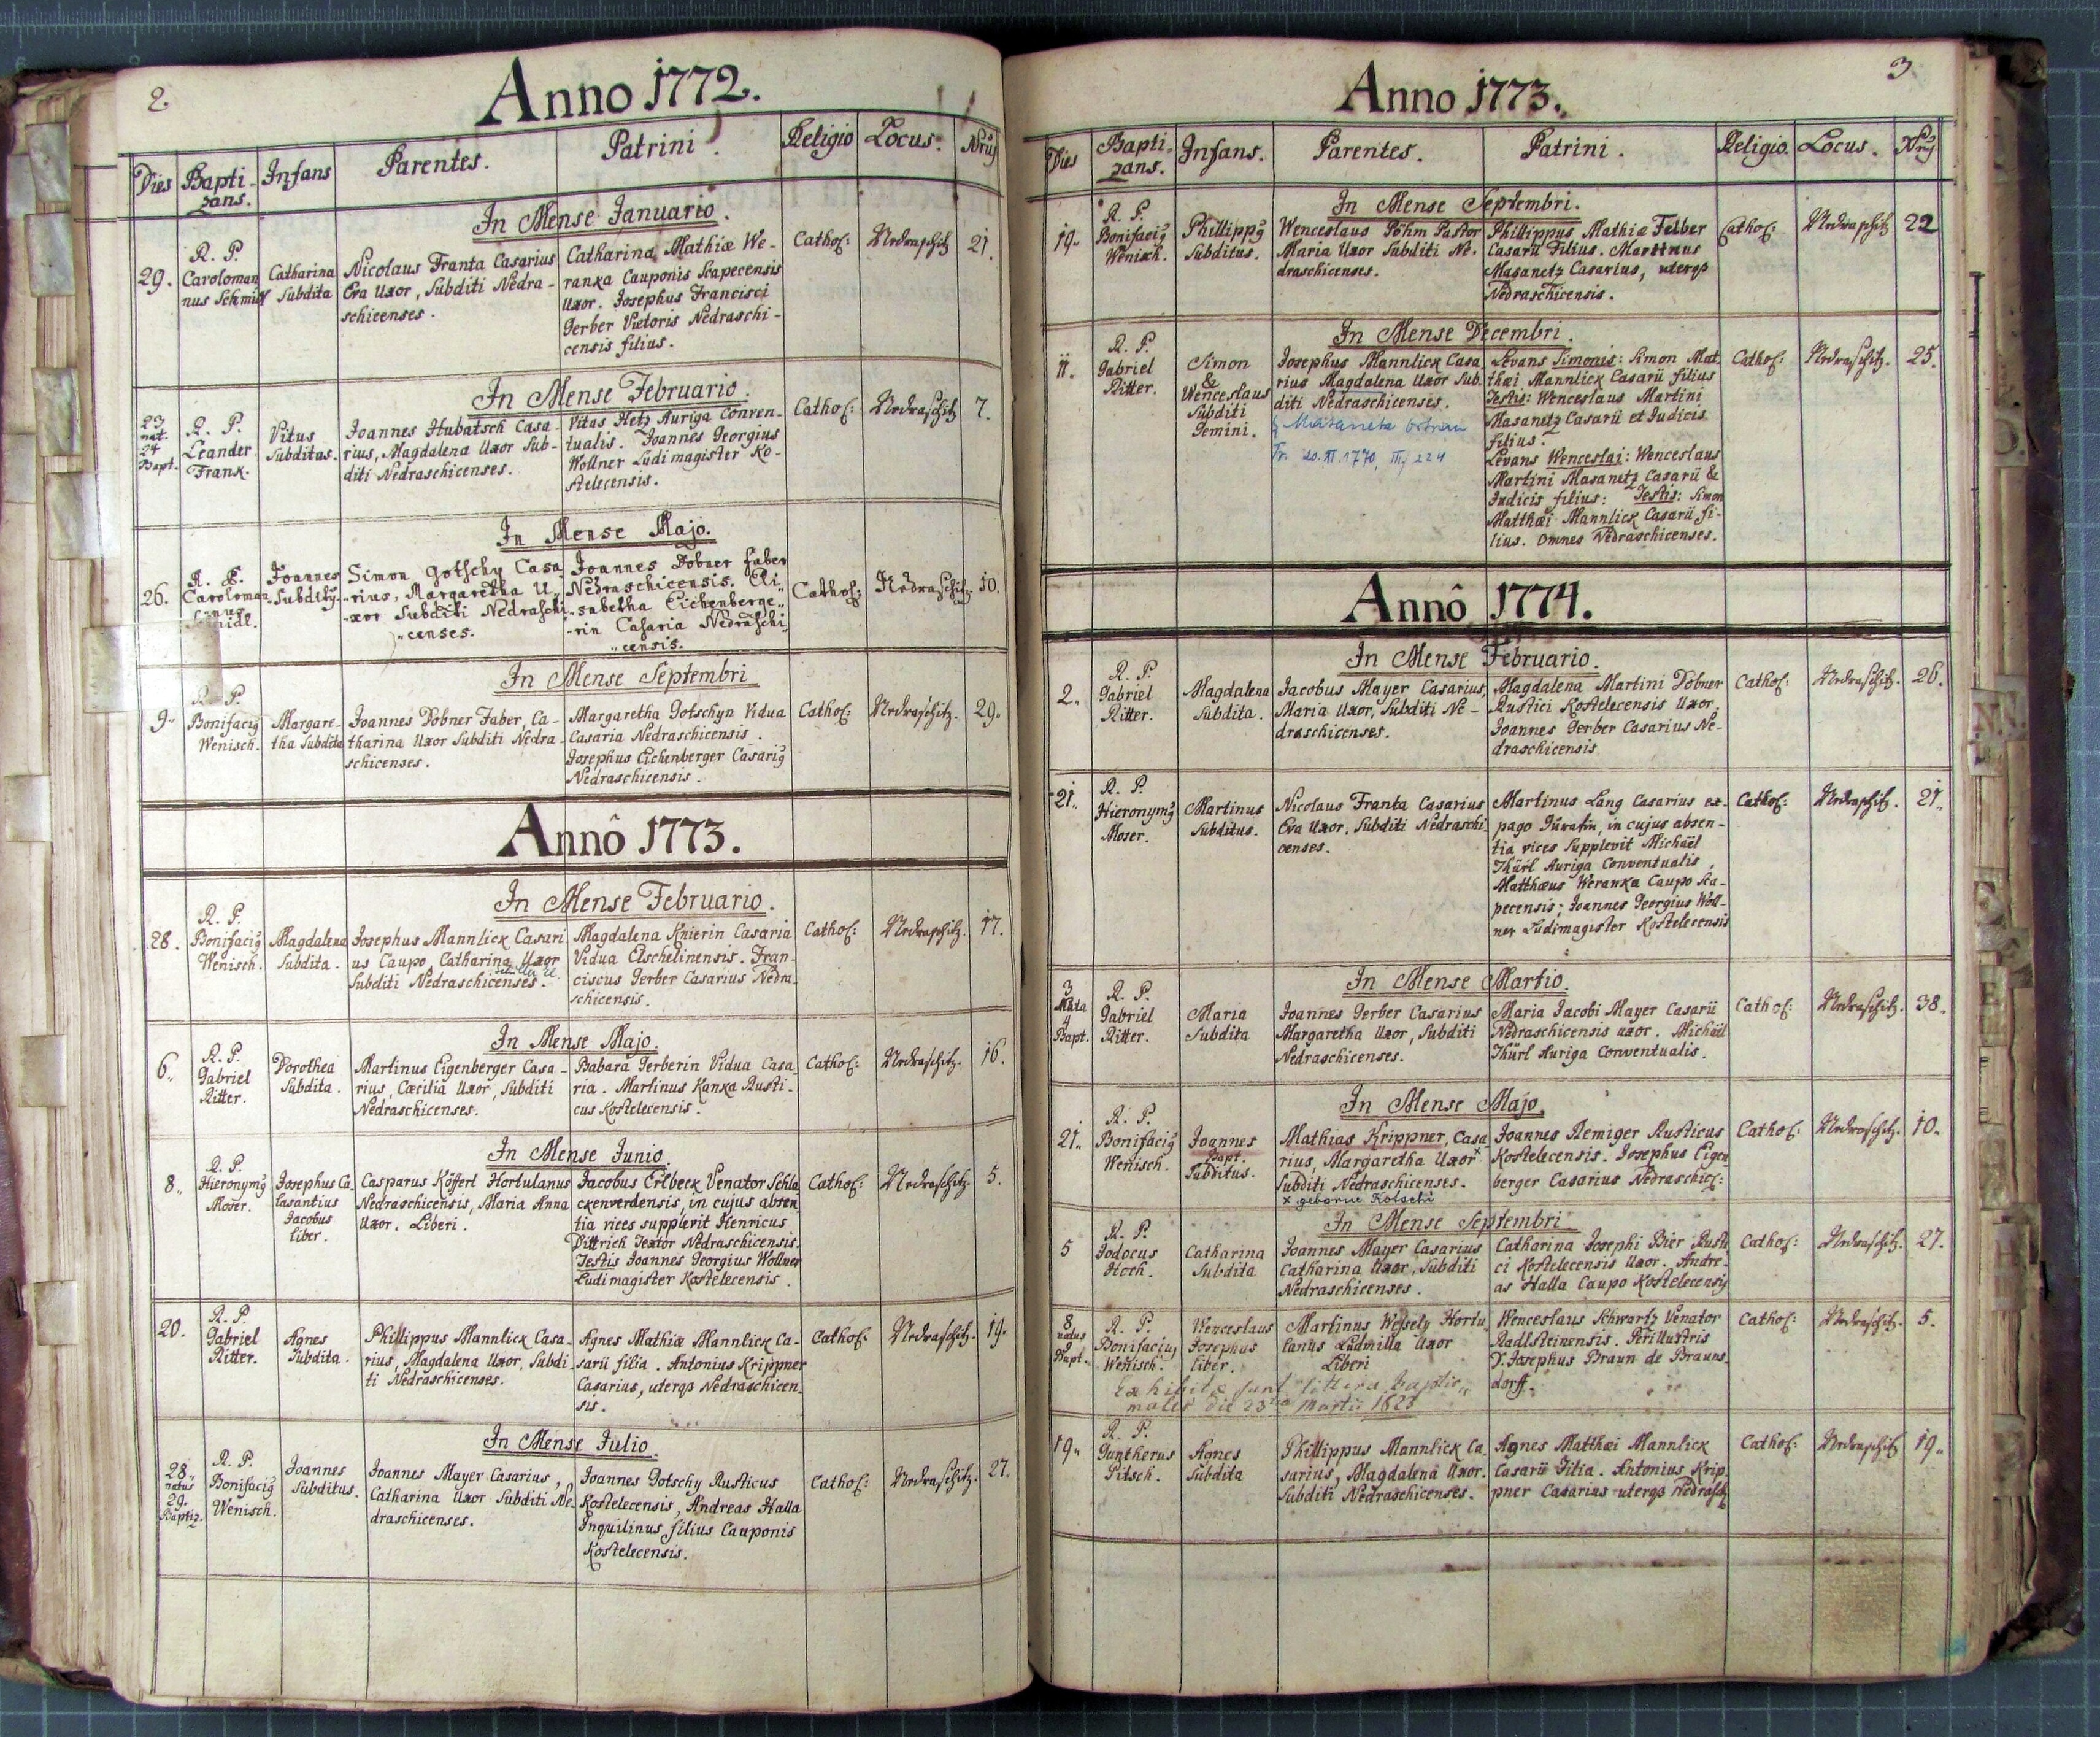 2.
Anno 1772.
Dies Bapti- zans. Infans Parentes. Patrini. Religio Locus. Nrus
In Mense Januario.
29.
R. P.
Caroloman
nus Schmidl
Catharina
Subdita
Nicolaus Franta Casarius
Eva Uxor, Subditi Nedra-
schicenses.
Catharina Mathiæ We-
ranka Cauponis Scapecensis
Uxor. Josephus Francisci
Gerber Vietoris Nedraschi-
censis filius.
Cathol:
Nedraschitz
21.
In Mense Februario.
23
nat.
24
Bapt.
R. P.
Leander
Frank.
Vitus
Subditus.
Joannes Hubatsch Casa-
rius, Magdalena Uxor Sub-
diti Nedraschicenses.
Vitus Hetz Auriga Conven-
tualis. Joannes Georgius
Wollner Ludimagister Ko-
stelecensis.
Cathol:
Nedraschitz
7.
In Mense Majo.
26.
R. P.
Caroloman
nus
Schmidl.
Joannes
Subditus.
Simon Gotschy Casa
rius, Margaretha U-
xor Subditi Nedraschi
censes.
Joannes Dobner Faber
Nedraschicensis. Eli-
sabetha Eichenberge-
rin Casaria Nedraschi
censis.
Cathol:
Nedraschitz.
10.
In Mense Septembri
9.
R. P.
Bonifacius
Wenisch.
Margare-
tha Subdita
Joannes Dobner Faber, Ca-
tharina Uxor Subditi Nedra-
schicenses.
Margaretha Gotschyn Vidua
Casaria Nedraschicensis.
Josephus Eichenberger Casarius
Nedraschicensis.
Cathol:
Nedraschitz.
29.
Annô 1773.
In Mense Februario.
28.
R. P.
Bonifacius
Wenisch.
Magdalena
Subdita.
Josephus Mannlick Casari
us Caupo, Catharina Uxor
Subditi Nedraschicenses.
Magdalena Knierin Casaria
Vidua Elschelinensis. Fran-
ciscus Gerber Casarius Nedra
schicensis.
Cathol:
Nedraschitz.
17.
In Mense Majo.
6.
R. P.
Gabriel
Ritter.
Dorothea
Subdita.
Martinus Eigenberger Casa-
rius, Cæcilia Uxor, Subditi
Nedraschicenses.
Babara Gerberin Vidua Casa-
ria. Martinus Kanka Rusti-
cus Kostelecensis.
Cathol:
Nedraschitz.
16.
In Mense Junio.
8.
R. P.
Hieronymus
Moser.
Josephus Ca
lasantius
Jacobus
liber.
Casparus Köfferl Hortulanus
Nedraschicensis, Maria Anna
Uxor. Liberi.
Jacobus Erlbeck Venator Schla
ckenverdensis, in cujus absen
tia vices supplevit Henricus
Dittrich Textor Nedraschicensis.
Testis Joannes Georgius Wollner
Ludimagister Kostelecensis.
Cathol:
Nedraschitz.
5.
20.
R. P.
Gabriel
Ritter.
Agnes
Subdita.
Phillippus Mannlick Casa-
rius, Magdalena Uxor, Subdi
ti Nedraschicenses.
Agnes Mathiæ Mannlick Ca-
sarii filia. Antonius Krippner
Casarius, uterqs Nedraschicen
sis.
Cathol:
Nedraschitz.
19.
In Mense Julio.
28.
natus
29.
Baptiz.
R. P.
Bonifacius
Wenisch.
Joannes
Subditus.
Joannes Mayer Casarius,
Catharina Uxor Subditi Ne-
draschicenses.
Joannes Gotschy Rusticus
Kostelecensis, Andreas Halla
Inquilinus, filius Cauponis
Kostelecensis.
Cathol:
Nedraschitz.
27.
3
Anno 1773.
Dies Bapti- zans. Infans. Parentes. Patrini. Religio. Locus. Nrus
In Mense Septembri.
19.
R. P.
Bonifacius
Wenisch.
Phillippus
Subditus.
Wenceslaus Pöhm Pastor
Maria Uxor Subditi Ne-
draschicenses.
Phillippus Mathiæ Felber
Casarii Filius. Martinus
Masanetz Casarius, uterqs
Nedraschicensis.
Cathol:
Nedraschitz
22
In Mense Decembri.
11.
R. P.
Gabriel
Ritter.
Simon
&
Wenceslaus
Subditi
Gemini.
Josephus Mannlick Casa
rius Magdalena Uxor Sub-
diti Nedraschicenses.
Tr. 20. XI 1770, III/224
Levans Simonis: Simon Mat
thæi Mannlick Casarii filius
Testis: Wenceslaus Martini
Masanetz Casarii et Judicis
filius.
Levans Wenceslai: Wenceslaus
Martini Masanetz Casarii &
Judicis filius: Testis: Simon
Matthæi Mannlick Casarii fi-
lius. Omnes Nedraschicenses.
Cathol:
Nedraschitz.
25.
Annô 1774.
In Mense Februario.
2.
R. P.
Gabriel
Ritter.
Magdalena
Subdita.
Jacobus Mayer Casarius,
Maria Uxor, Subditi Ne-
draschicenses.
Magdalena Martini Dobner
Rustici Kostelecensis Uxor.
Joannes Gerber Casarius Ne-
draschicensis
Cathol:
Nedraschitz.
26.
21.
R. P.
Hieronymus
Moser.
Martinus
Subditus.
Nicolaus Franta Casarius
Eva Uxor, Subditi Nedraschi
censes.
Martinus Lang Casarius ex-
pago, in cujus absen-
tia vices supplevit Michäel
Thürl Auriga Conventualis,
Matthæus Weranka Caupo Sca-
pecensis; Joannes Georgius Woll-
ner Ludimagister Kostelecensis
Cathol:
Nedraschitz.
21.
In Mense Martio.
3
Nata
4
Bapt.
R. P.
Gabriel
Ritter.
Maria
Subdita
Joannes Gerber Casarius
Margaretha Uxor, Subditi
Nedraschicenses.
Maria Jacobi Mayer Casarii
Nedraschicensis uxor. Michäel
Thürl Auriga Conventualis.
Cathol:
Nedraschitz.
38.
In Mense Majo.
21.
R. P.
Bonifacius
Wenisch.
Joannes
Bapt.
Subditus.
Mathias Krippner, Casa
rius, Margaretha Uxor x
Subditi Nedraschicenses.
x geborne Kotschi
Joannes Remiger Rusticus
Kostelecensis. Josephus Eigen
berger Casarius Nedraschic:
Cathol:
Nedraschitz.
10.
In Mense Septembri
5
R. P.
Jodocus
Hoch.
Catharina
Subdita
Joannes Mayer Casarius
Catharina Uxor, Subditi
Nedraschicenses.
Catharina Josephi Bier Rusti
ci Kostelecensis Uxor. Andre-
as Halla Caupo Kostelecensis
Cathol:
Nedraschitz.
27.
8.
natus
9
Bapt.
R. P.
Bonifacius
Wenisch.
Wenceslaus
Josephus
liber.
Martinus Wessely Hortu
lanus Ludmilla Uxor
Liberi
Wenceslaus Schwartz Venator
Radlsteinensis. Perillustris
D. Josephus Braun de Brauns-
dorff.
Cathol:
Nedraschitz.
5.
Exhibitæ sunt litteræ baptis-
males die 23tia Martii 1823
19.
R. P.
Guntherus
Pitsch.
Agnes
Subdita
Phillippus Mannlick Ca
sarius, Magdalena Uxor.
Subditi Nedraschicenses.
Agnes Matthæi Mannlick
Casarii Filia. Antonius Krip
pner Casarius uterqs Nedrasch
Cathol:
Nedraschitz
19.